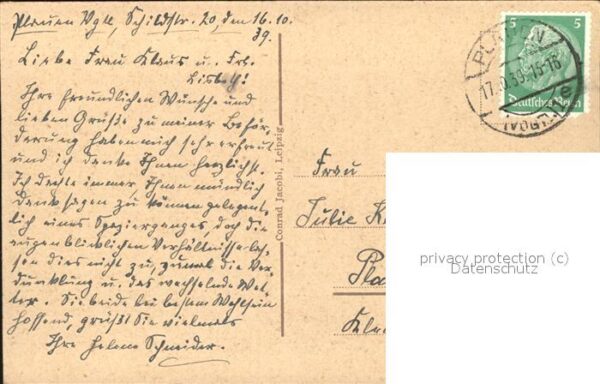 Plauen Vgtl., Schildstr. 20, den 16.10.
39.
Liebe Frau Klaus u. Frl.
Lisbeth!
Ihre freundlichen Wünsche und
lieben Grüße zu meiner Beför-
derung haben mich sehr erfreut
und ich danke Ihnen herzlichst.
Ich dachte immer, Ihnen mündlich
Dank sagen zu können gelegent-
lich eines Spazierganges, doch die
augenblicklichen Verhältnisse las-
sen dies nicht zu, zumal die Ver-
dunklung u. das wechselnde Wet-
ter. Sie beide bei bestem Wohlsein
hoffend, grüßt Sie vielmals
Ihre Helene Schneider.
Conrad Jacobi, Leipzig
5 5
Deutsches Reich
PLAUEN
(VOGTL)
Frau
Julie K
Pla
privacy protection (c)
Datenschutz